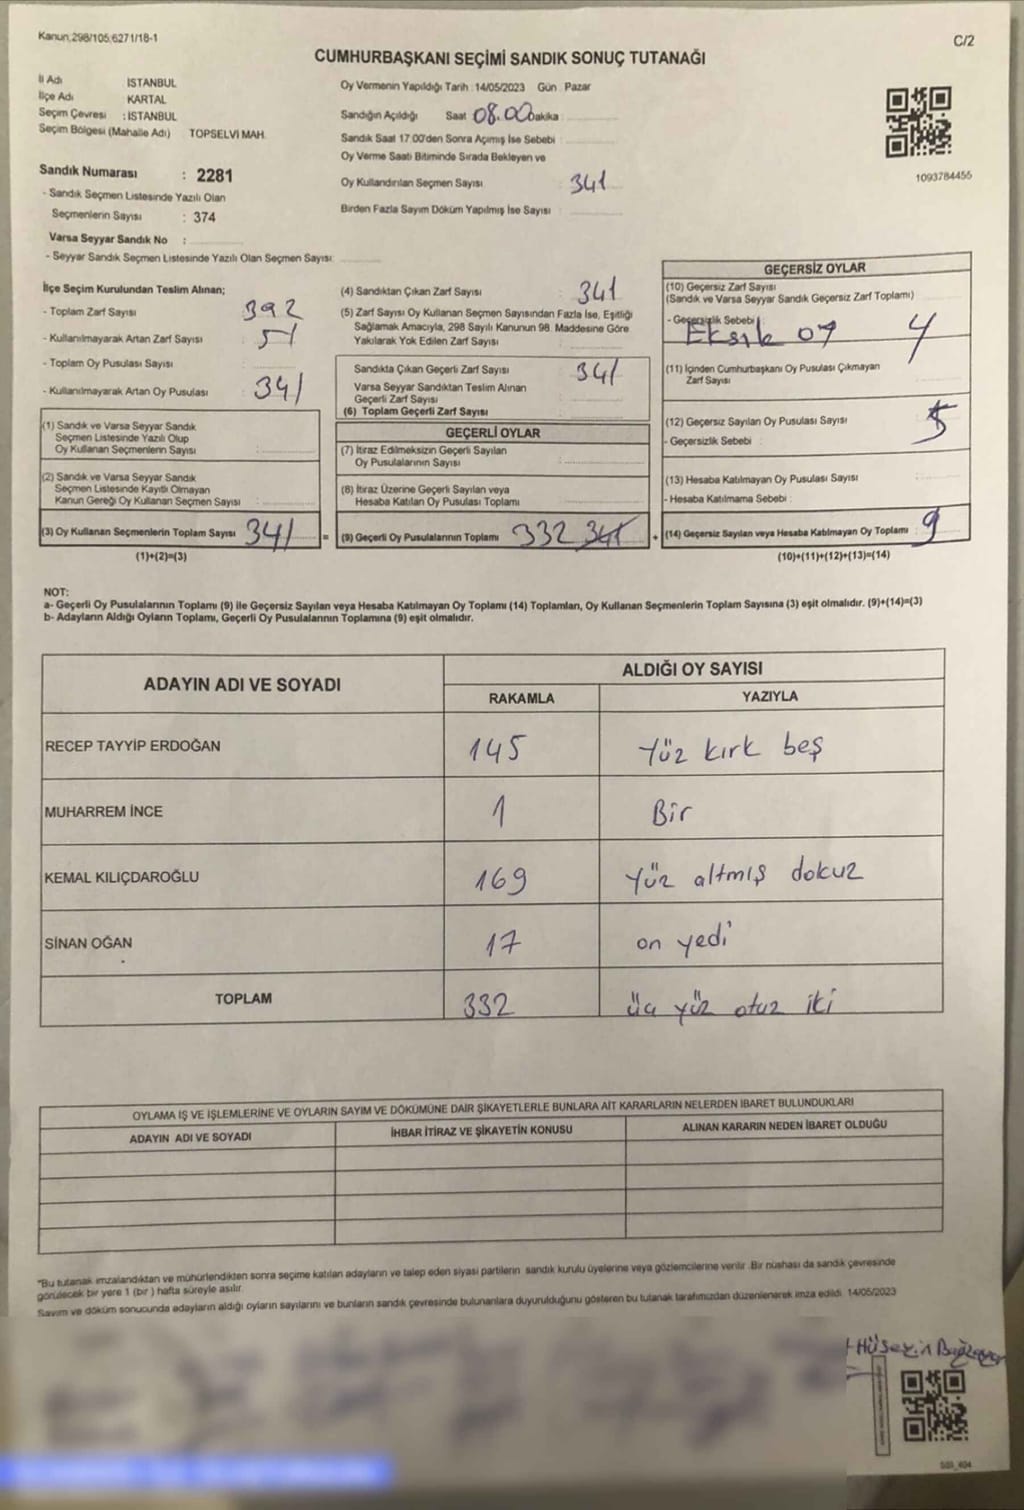 Kanun;298/105;6271/18-1
C/2
CUMHURBAŞKANI SEÇİMİ SANDIK SONUÇ TUTANAĞI
İl Adı İSTANBUL
İlçe Adı KARTAL
Seçim Çevresi : İSTANBUL
Seçim Bölgesi (Mahalle Adı) TOPSELVİ MAH.
Sandık Numarası : 2281
- Sandık Seçmen Listesinde Yazılı Olan
Seçmenlerin Sayısı : 374
Varsa Seyyar Sandık No :
- Seyyar Sandık Seçmen Listesinde Yazılı Olan Seçmen Sayısı:
Oy Vermenin Yapıldığı Tarih : 14/05/2023 Gün : Pazar
Sandığın Açıldığı Saat 08.00 Dakika :
Sandık Saat 17:00'den Sonra Açımış İse Sebebi :
Oy Verme Saati Bitiminde Sırada Bekleyen ve
Oy Kullandırılan Seçmen Sayısı : 341
Birden Fazla Sayım Döküm Yapılmış İse Sayısı :
1093784455
İlçe Seçim Kurulundan Teslim Alınan;
- Toplam Zarf Sayısı 392
- Kullanılmayarak Artan Zarf Sayısı 51
- Toplam Oy Pusulası Sayısı
- Kullanılmayarak Artan Oy Pusulası 341
(1) Sandık ve Varsa Seyyar Sandık
Seçmen Listesinde Yazılı Olup
Oy Kullanan Seçmenlerin Sayısı
(2) Sandık ve Varsa Seyyar Sandık
Seçmen Listesinde Kayıtlı Olmayan
Kanun Gereği Oy Kullanan Seçmen Sayısı
(3) Oy Kullanan Seçmenlerin Toplam Sayısı 341 =
(1)+(2)=(3)
(4) Sandıktan Çıkan Zarf Sayısı 341
(5) Zarf Sayısı Oy Kullanan Seçmen Sayısından Fazla İse, Eşitliği
Sağlamak Amacıyla, 298 Sayılı Kanunun 98. Maddesine Göre
Yakılarak Yok Edilen Zarf Sayısı
Sandıkta Çıkan Geçerli Zarf Sayısı 341
Varsa Seyyar Sandıktan Teslim Alınan
Geçerli Zarf Sayısı
(6) Toplam Geçerli Zarf Sayısı
GEÇERLİ OYLAR
(7) İtiraz Edilmeksizin Geçerli Sayılan
Oy Pusulalarının Sayısı
(8) İtiraz Üzerine Geçerli Sayılan veya
Hesaba Katılan Oy Pusulaları Toplamı
(9) Geçerli Oy Pusulalarının Toplamı 332 341 +
GEÇERSİZ OYLAR
(10) Geçersiz Zarf Sayısı
(Sandık ve Varsa Seyyar Sandık Geçersiz Zarf Toplamı)
- Geçersizlik Sebebi : Eksik oy 4
(11) İçinden Cumhurbaşkanı Oy Pusulası Çıkmayan
Zarf Sayısı
(12) Geçersiz Sayılan Oy Pusulası Sayısı 5
- Geçersizlik Sebebi :
(13) Hesaba Katılmayan Oy Pusulası Sayısı
- Hesaba Katılmama Sebebi :
(14) Geçersiz Sayılan veya Hesaba Katılmayan Oy Toplamı : 9
(10)+(11)+(12)+(13)=(14)
NOT:
a- Geçerli Oy Pusulalarının Toplamı (9) ile Geçersiz Sayılan veya Hesaba Katılmayan Oy Toplamı (14) Toplamları, Oy Kullanan Seçmenlerin Toplam Sayısına (3) eşit olmalıdır. (9)+(14)=(3)
b- Adayların Aldığı Oyların Toplamı, Geçerli Oy Pusulalarının Toplamına (9) eşit olmalıdır.
ADAYIN ADI VE SOYADI ALDIĞI OY SAYISI
RAKAMLA YAZIYLA
RECEP TAYYİP ERDOĞAN 145 Yüz kırk beş
MUHARREM İNCE 1 Bir
KEMAL KILIÇDAROĞLU 169 Yüz altmış dokuz
SİNAN OĞAN 17 on yedi
TOPLAM 332 üç yüz otuz iki
OYLAMA İŞ VE İŞLEMLERİNE VE OYLARIN SAYIM VE DÖKÜMÜNE DAİR ŞİKAYETLERLE BUNLARA AİT KARARLARIN NELERDEN İBARET BULUNDUKLARI
ADAYIN ADI VE SOYADI İHBAR İTİRAZ VE ŞİKAYETİN KONUSU ALINAN KARARIN NEDEN İBARET OLDUĞU
"Bu tutanak imzalandıktan ve mühürlendikten sonra seçime katılan adayların ve talep eden siyasi partilerin sandık kurulu üyelerine veya gözlemcilerine verilir. Bir nüshası da sandık çevresinde
görülecek bir yere 1 (bir ) hafta süreyle asılır.
Sayım ve döküm sonucunda adayların aldığı oyların sayılarını ve bunların sandık çevresinde bulunanlara duyurulduğunu gösteren bu tutanak tarafımızdan düzenlenerek imza edildi. 14/05/2023
Hüseyin